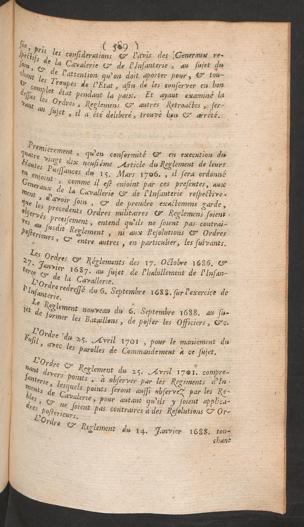 ( 589 )
sin, pris les considerations & l'avis des Generaux re-
spectifs de la Cavalerie & de l'Infanterie, au sujet du
& de l'attention qu'on doit aporter pour, & tou-
chant les Troupes de l'Etat, afin de les conserver en bon
& complet état pendant la paix. Et ayant examiné la
dessus les Ordres, Reglemens & autres Retroactes, ser-
vant au sujet, il a été deliberé, trouvé bon & arrêté.
Premierement, qu'en conformité & en execution du
quatre vingt dix neufiéme Article du Reglement de leurs
Hautes Puissances du 15. Mars 1706. il sera ordonné
en enjoint, comme il est enjoint par ces presentes, aux
Generaux de la Cavallerie & de l'Infanterie respective-
ment, d'avoir soin, & de prendre exactemme garde,
que les precedents Ordres militaires & Reglemens soient
observés precisement, entend qu'ils ne soient pas contrai-
res au susdit Reglement, ni aux Resolutions & Ordres
posterieurs, & entre autres, en particulier, les suivants.
Les Ordres & Réglements des 17. Octobre 1686. &
27. Janvier 1687. au sujet de l'habillement de l'Infan-
terie & de la Cavallerie.
L'Ordre redressé du 6. Septembre 1688. sur l'exercice de
l'Infanterie.
Le Reglement nouveau du 6. Septembre 1688. au su-
jet de former les Bataillons, de poster les Officiers, &c.
L'Ordre du 25. Avril 1701, pour le maniement du
Fusil, avec les parolles de Commandement à ce sujet.
L'Ordre & Reglement du 25. Avril 1701. compre-
nant devers points, à observer par les Regiments d'In-
fanterie, lesquels points seront aussi observez par les Re-
giments de Cavalerie, pour autant qu'ils y soient applica-
bles, & ne soient pas contraires à des Resolutions & Or-
dres posterieurs.
L'Ordre & Reglement du 14. Janvier 1688. tou-
chant